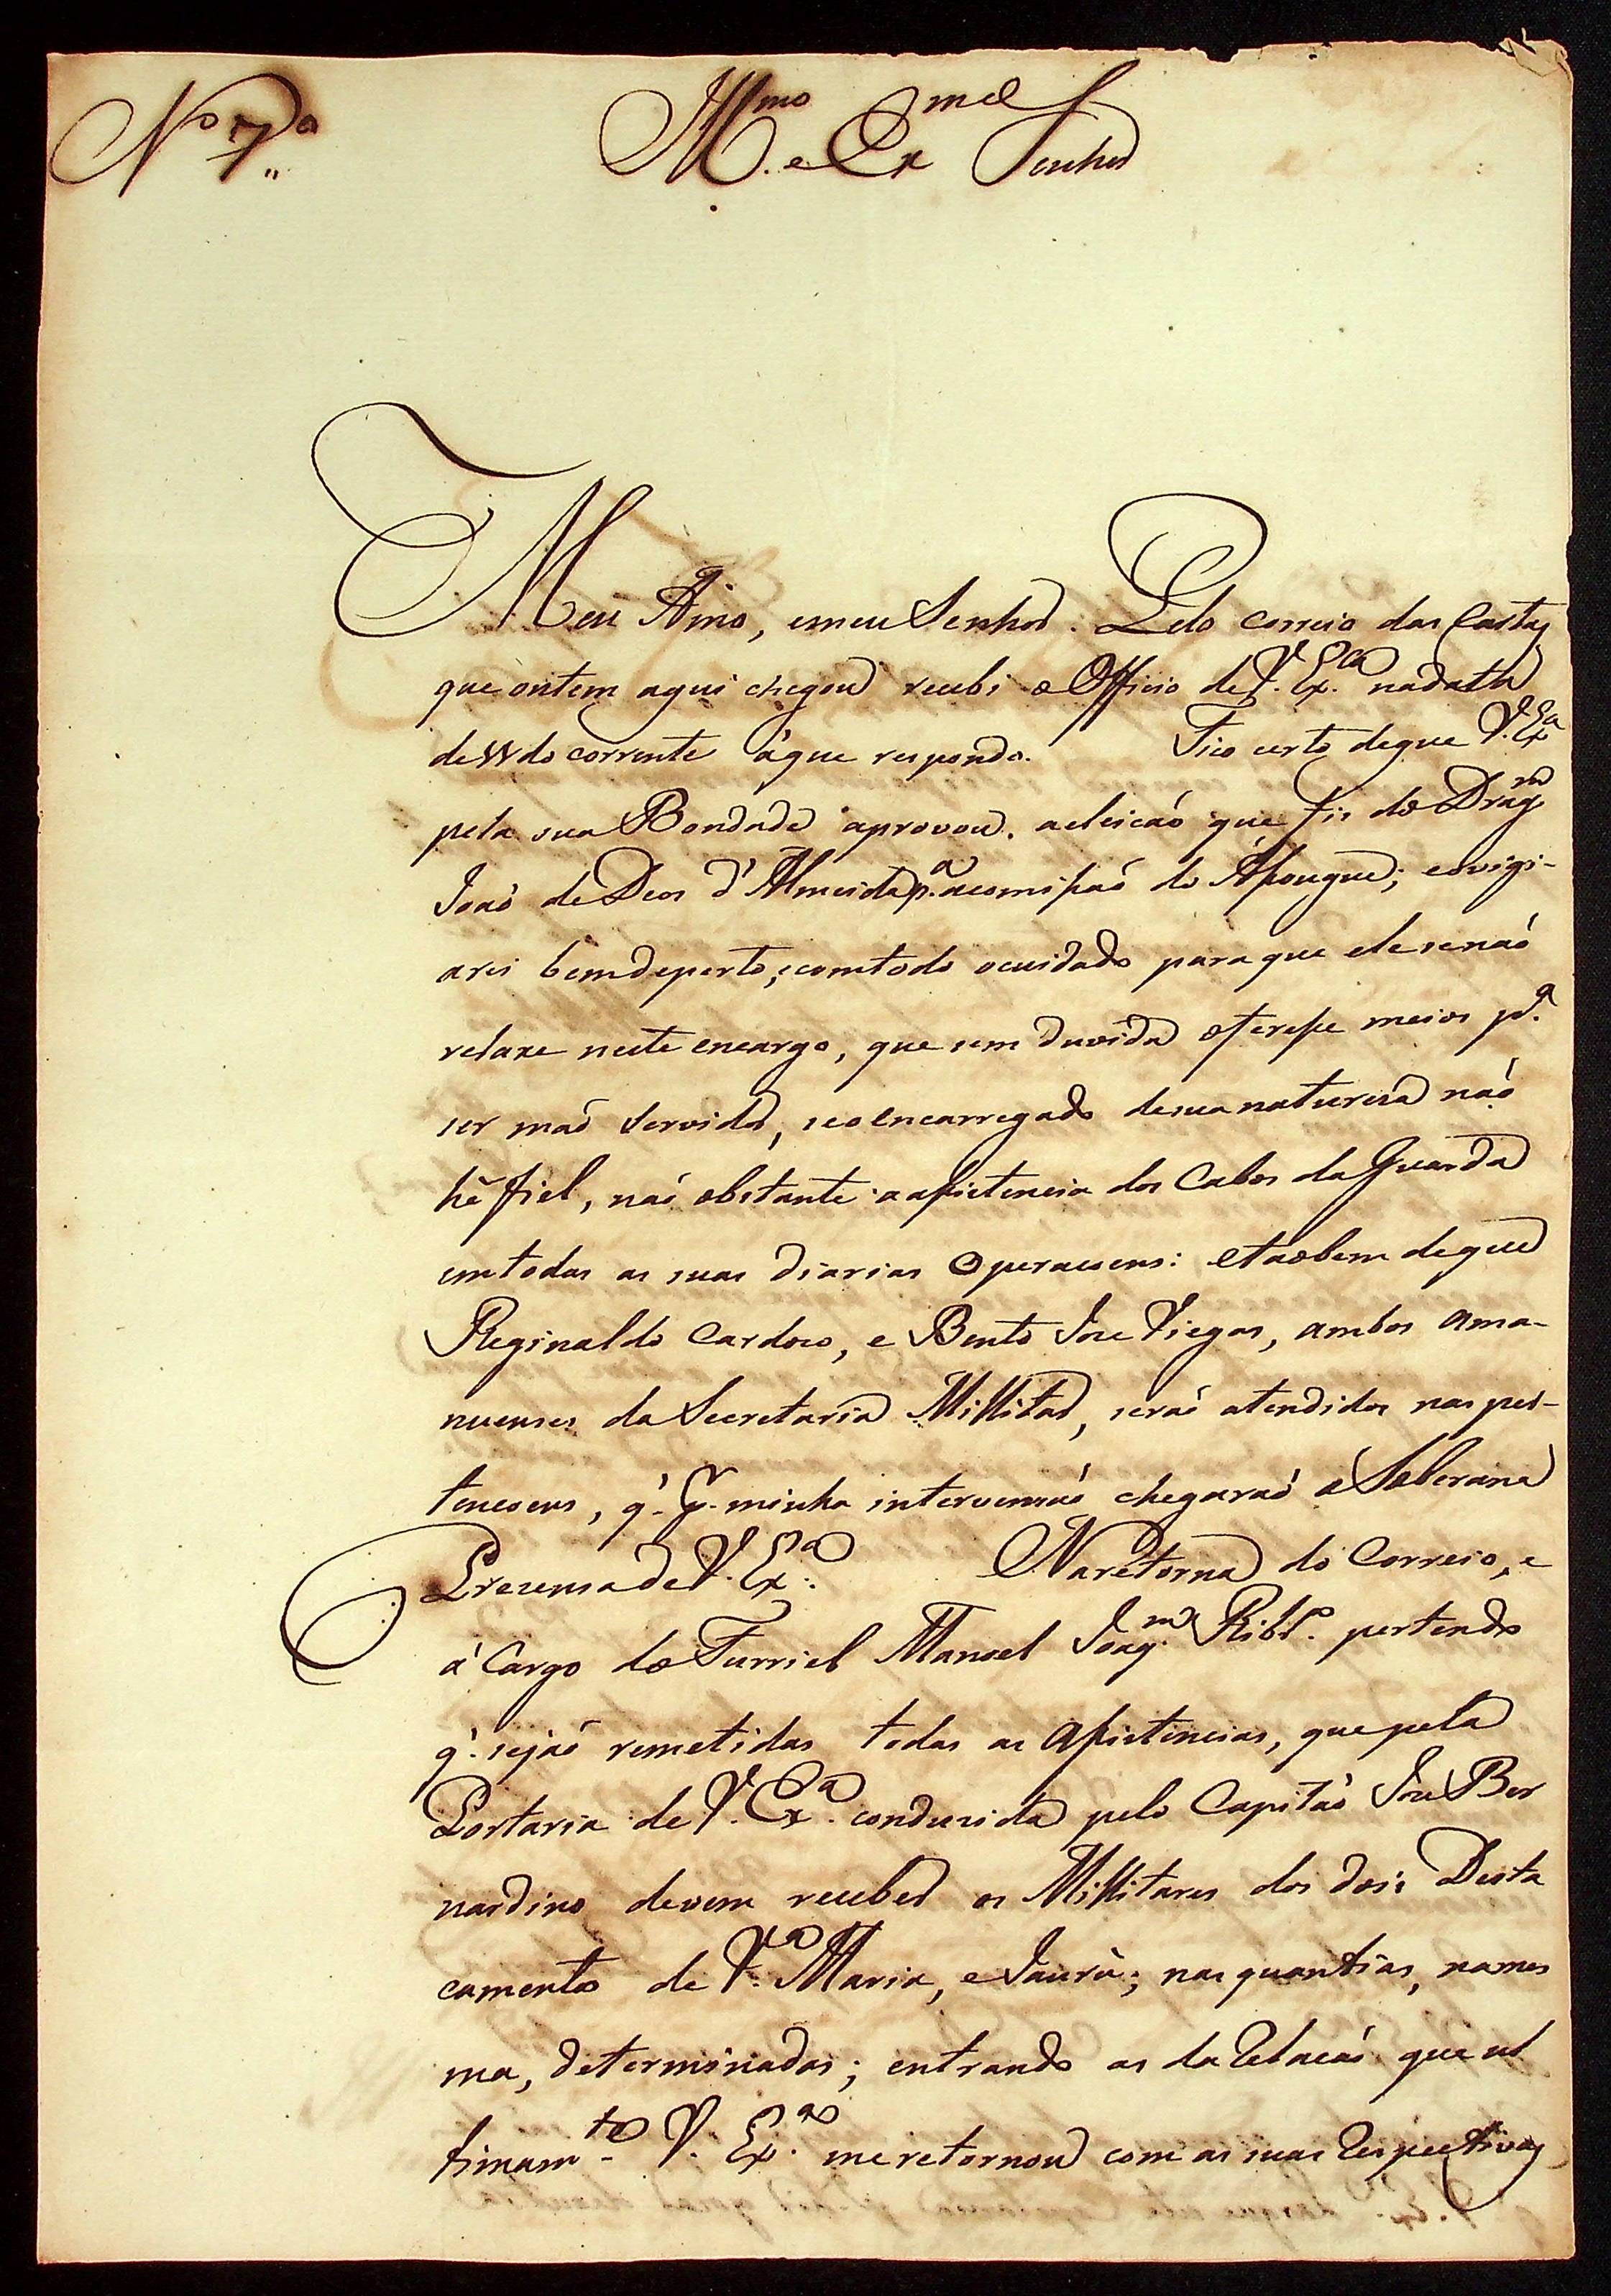 Nº 7º
Illmo. e Exmo Senhor
Meu Amo, emeu Senhor. Pelo correio das Cartas
que ontem aqui chegou recebi o Officio de V. Exca. nadata
do corrente áque respondo. Fico certo deque V. Exa
pela sua Bondade aprovou. aeleicaó que fis do Dragm
Joaó de Deos d'Almeida p.a acomissaó do Assougue; eovigi-
arei bemdeperto, ecomtodo ocuidado paraque ele senaó
relaxe neste encargo, que sem duvida oferesse meios pª
ser mao servido, seoencarregado desua naturesa naó
hê fiel, naó obstante aassistencia dos Cabos da Guarda
emtodas as suas diarias Operacoens: etaobem deque
Reginaldo Cardozo, e Bento Joze Viegas, ambos ama-
nuenses da Secretaria Millitar, seraó atendidos nas per-
tencoens, q'. pr. minha intervensaó chegaraó a Soberana
Prezensa de V. Exª. Na retorna do Correio, e
á Cargo do Furriel Manoel Joaqm. Ribrº. pertendo
q'. sejaó remetidas todas as Assistencias, que pela
Portaria de V. Exª. condusida pelo Capitaó Joze Ber
nardino devem receber os Millitares dos dois Desta
camentos de Vª. Maria, e Jaurú; nas quantias, names
ma, determinadas; entrando as da Relacaó que ul
timamte V. Exª. me retornou com as suas Respectivas